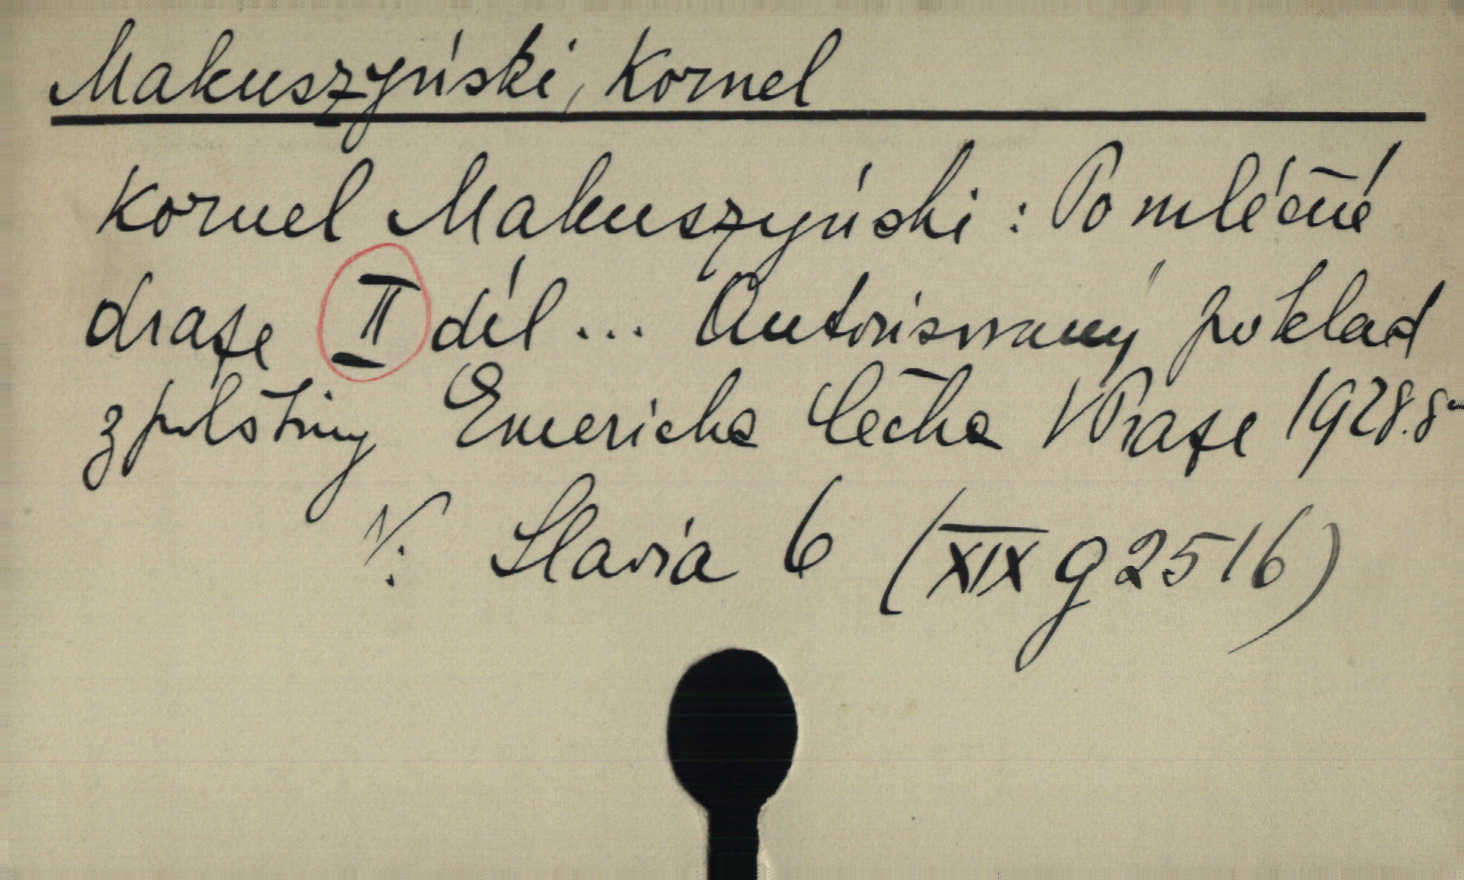 Makuszyński, Kornel
Kornel Makuszyński: Po mléčné
draze II díl... Autorisovaný poklad
z polštiny Emericha Čecha V Praze 1928. 8°
V: Slavia 6 (XIX g 2516)